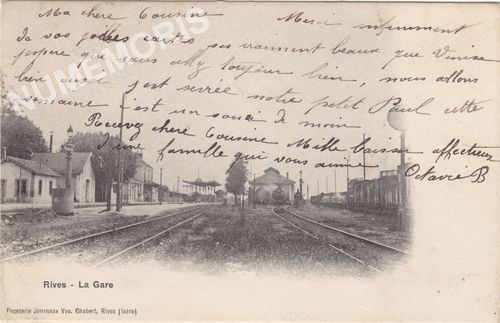 Ma chere Cousine Merci infiniment
de vos jolies cartes vraiment beaux que Venise
j'espere que vous allez toujour bien, nous allons
bien aussi s'est sevrée notre petit Paul cette
semaine c'est un souci de moin
Recevez chere Cousine Mille baisers affectueux
d'une famille qui vous aime Octavie B
NUMEMORIS
Rives - La Gare
Papeterie Journaux Vve. Chabert, Rives (Isère)